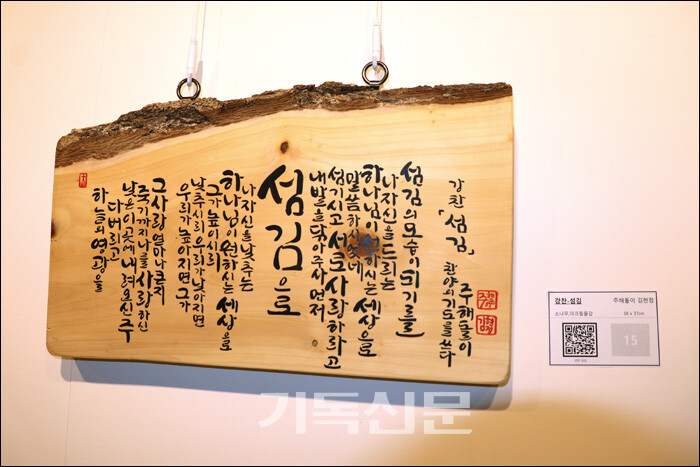 하늘의 영광을
다 버리고
낮은 이곳에 내려오신 주
죽기까지 나를 사랑하신
그 사랑 얼마나 큰지
우리가 높아지면 그가
낮추시리 우리가 낮아지면
그가 높이시리
하나님이 원하시는 세상으로
나 자신을 낮추는
섬김으로
내 발을 닦아 주사 먼저
섬기시고 서로 사랑하라고
말씀하시었네
하나님이 원하시는 세상으로
나 자신을 드리는
섬김의 모습이 되기를
강찬 「섬김」 찬양의 기도를 쓰다
주해돌이
강찬-섬김 주해돌이 김현정
소나무,아크릴물감 58 x 31cm
15
기독신문